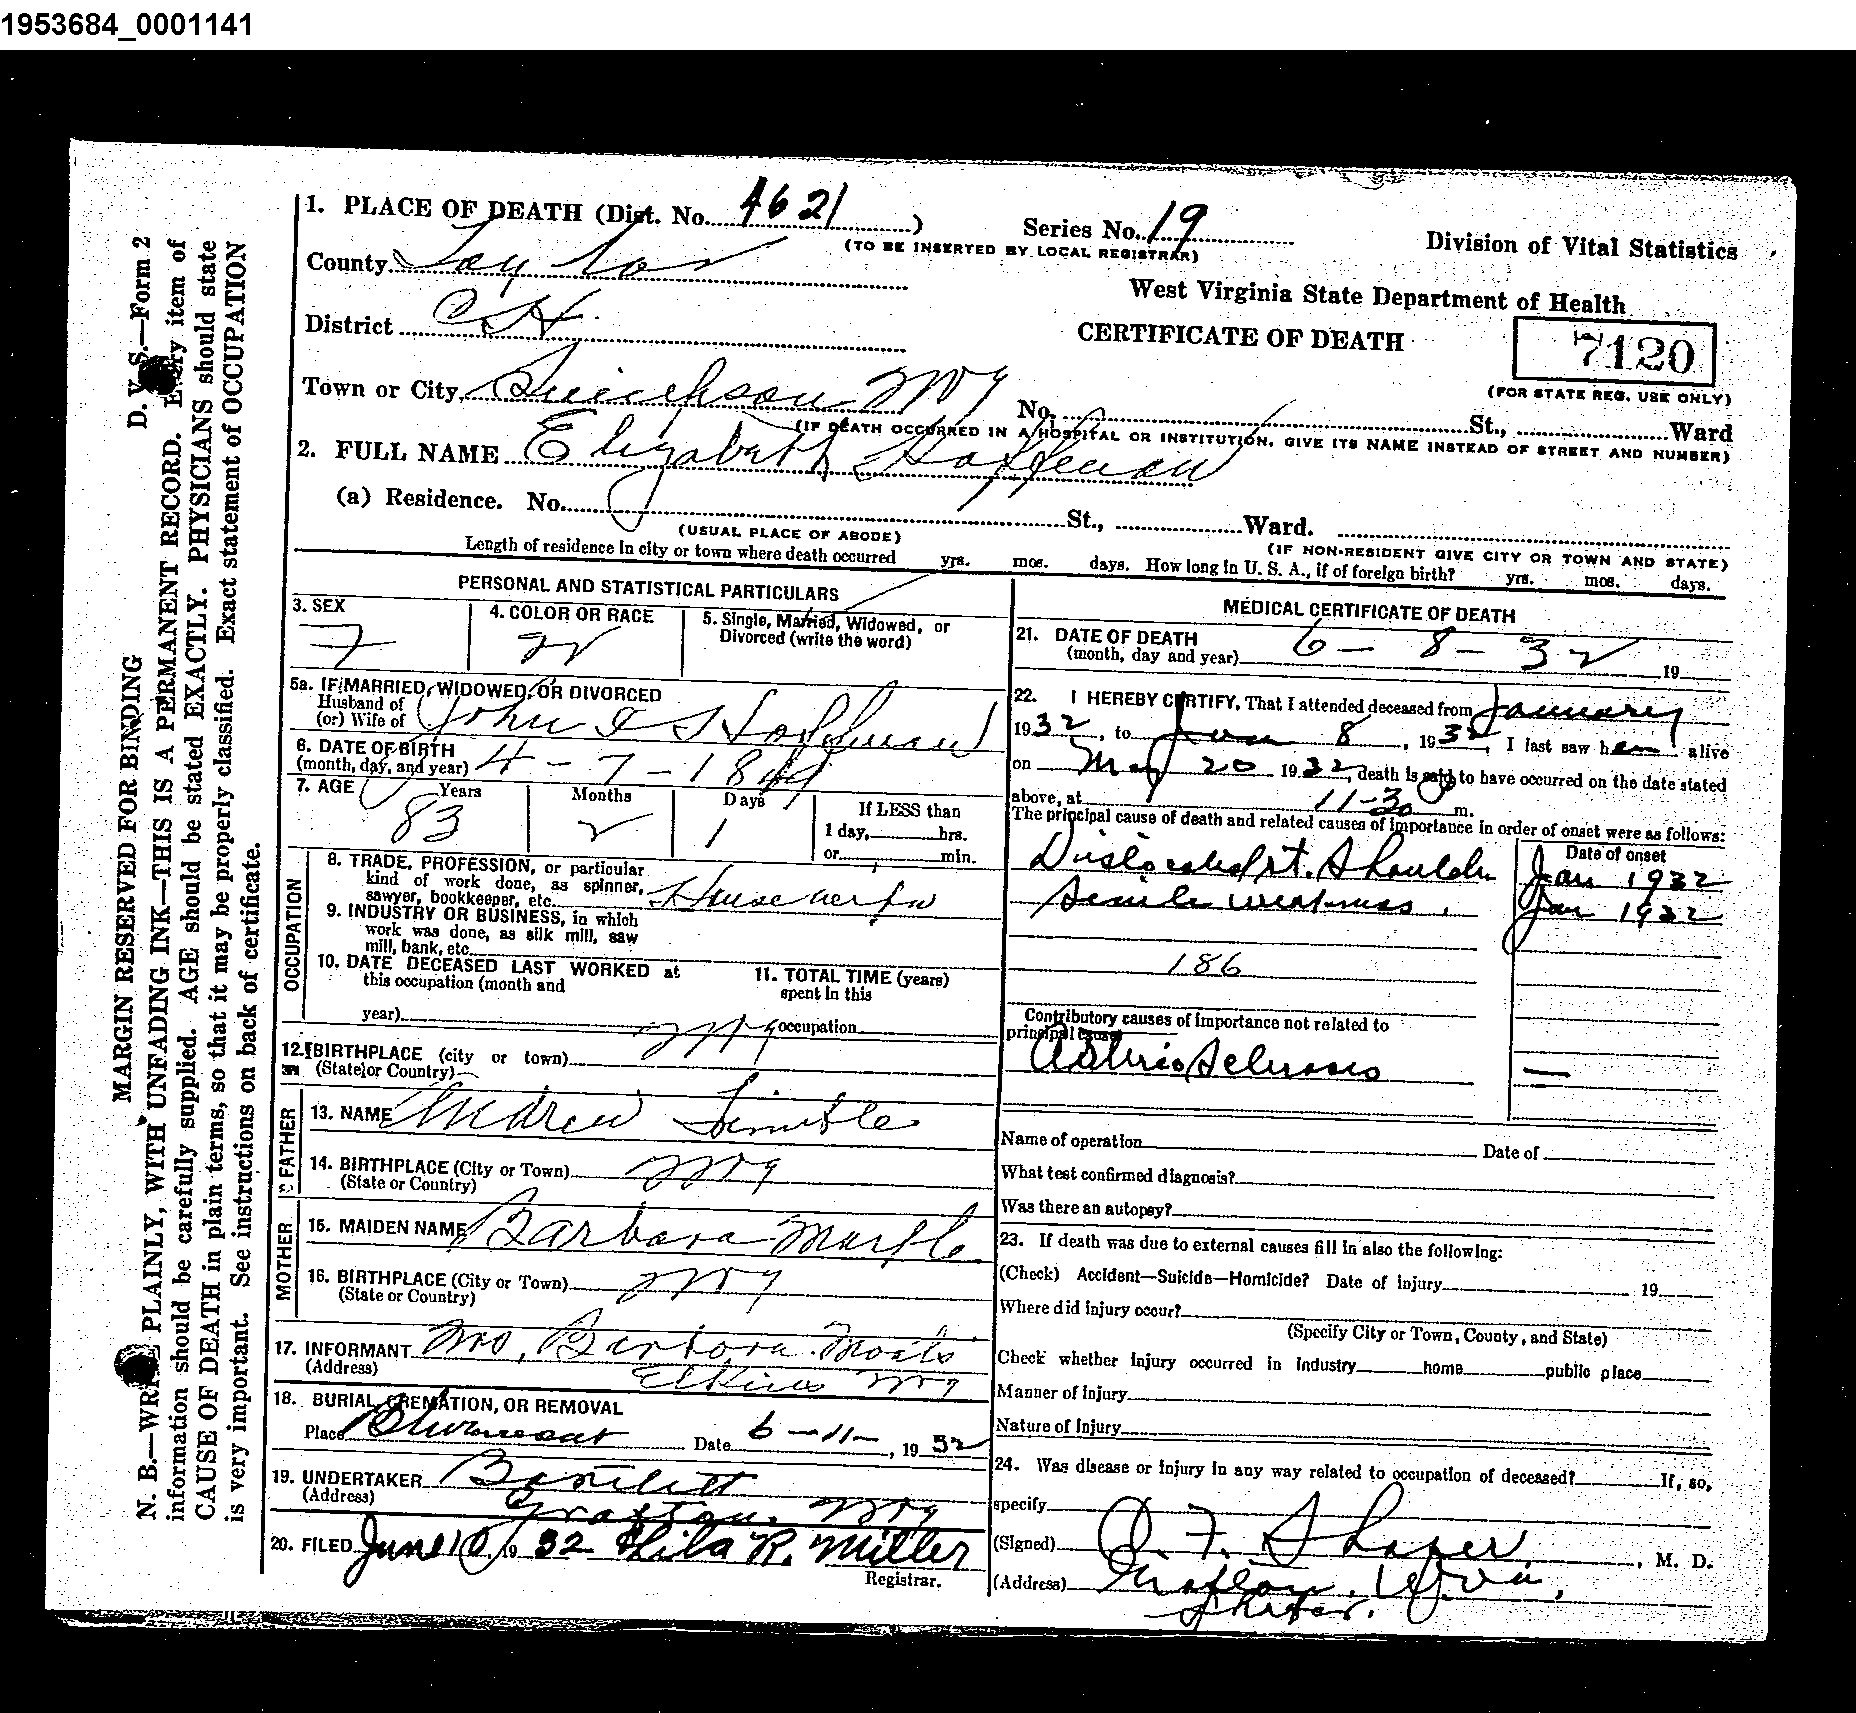 1953684_0001141
D. V. S.—Form 2
MARGIN RESERVED FOR BINDING
N. B.—WRITE PLAINLY, WITH UNFADING INK—THIS IS A PERMANENT RECORD. Every item of
information should be carefully supplied. AGE should be stated EXACTLY. PHYSICIANS should state
CAUSE OF DEATH in plain terms, so that it may be properly classified. Exact statement of OCCUPATION
is very important. See instructions on back of certificate.
1. PLACE OF DEATH (Dist. No. 4621)
Series No. 19
(TO BE INSERTED BY LOCAL REGISTRAR)
Division of Vital Statistics
County Taylor
West Virginia State Department of Health
District C H.
CERTIFICATE OF DEATH
7120
(FOR STATE REG. USE ONLY)
Town or City WVa
No. St., Ward
(IF DEATH OCCURRED IN A HOSPITAL OR INSTITUTION, GIVE ITS NAME INSTEAD OF STREET AND NUMBER)
2. FULL NAME Elizabeth Hoffman
(a) Residence. No. St., Ward.
(USUAL PLACE OF ABODE)
(IF NON-RESIDENT GIVE CITY OR TOWN AND STATE)
Length of residence in city or town where death occurred yrs. mos. days. How long in U. S. A., if of foreign birth? yrs. mos. days.
PERSONAL AND STATISTICAL PARTICULARS
3. SEX
F
4. COLOR OR RACE
W
5. Single, Married, Widowed, or
Divorced (write the word)
5a. IF MARRIED, WIDOWED, OR DIVORCED
Husband of
(or) Wife of John Hoffman
6. DATE OF BIRTH
(month, day, and year) 4-7-1849
7. AGE Years Months Days
83 2 1
If LESS than
1 day, hrs.
or min.
OCCUPATION
8. TRADE, PROFESSION, or particular
kind of work done, as spinner,
sawyer, bookkeeper, etc.
9. INDUSTRY OR BUSINESS, in which
work was done, as silk mill, saw
mill, bank, etc.
10. DATE DECEASED LAST WORKED at
this occupation (month and
year)
11. TOTAL TIME (years)
spent in this
occupation
12. BIRTHPLACE (city or town) WVa
(State or Country)
FATHER
13. NAME Andrew
14. BIRTHPLACE (City or Town) WVa
(State or Country)
MOTHER
15. MAIDEN NAME Barbara
16. BIRTHPLACE (City or Town) WVa
(State or Country)
17. INFORMANT Mrs. Barbora Moats
(Address) Elkins WVa
18. BURIAL, CREMATION, OR REMOVAL
Place Date 6-11-, 1932
19. UNDERTAKER Bartlett
(Address) Grafton, WVa
20. FILED June 10, 1932 R. Miller
Registrar.
MEDICAL CERTIFICATE OF DEATH
21. DATE OF DEATH
(month, day and year) 6-8-32 19
22. I HEREBY CERTIFY, That I attended deceased from January
1932, to June 8, 1932, I last saw her alive
on May 20 1932, death is said to have occurred on the date stated
above, at 11-30 m.
The principal cause of death and related causes of importance in order of onset were as follows:
Date of onset
Dislocated rt. Shoulder Jan 1932
Senile weakness. Jan 1932
186
Contributory causes of importance not related to
principal cause
Arterio Sclerosis —
Name of operation Date of
What test confirmed diagnosis?
Was there an autopsy?
23. If death was due to external causes fill in also the following:
(Check) Accident—Suicide—Homicide? Date of injury 19
Where did injury occur?
(Specify City or Town, County, and State)
Check whether injury occurred in industry home public place
Manner of injury
Nature of injury
24. Was disease or injury in any way related to occupation of deceased? If, so,
specify
(Signed) Shafer, M. D.
(Address) Grafton, W. Va.
Shafer.